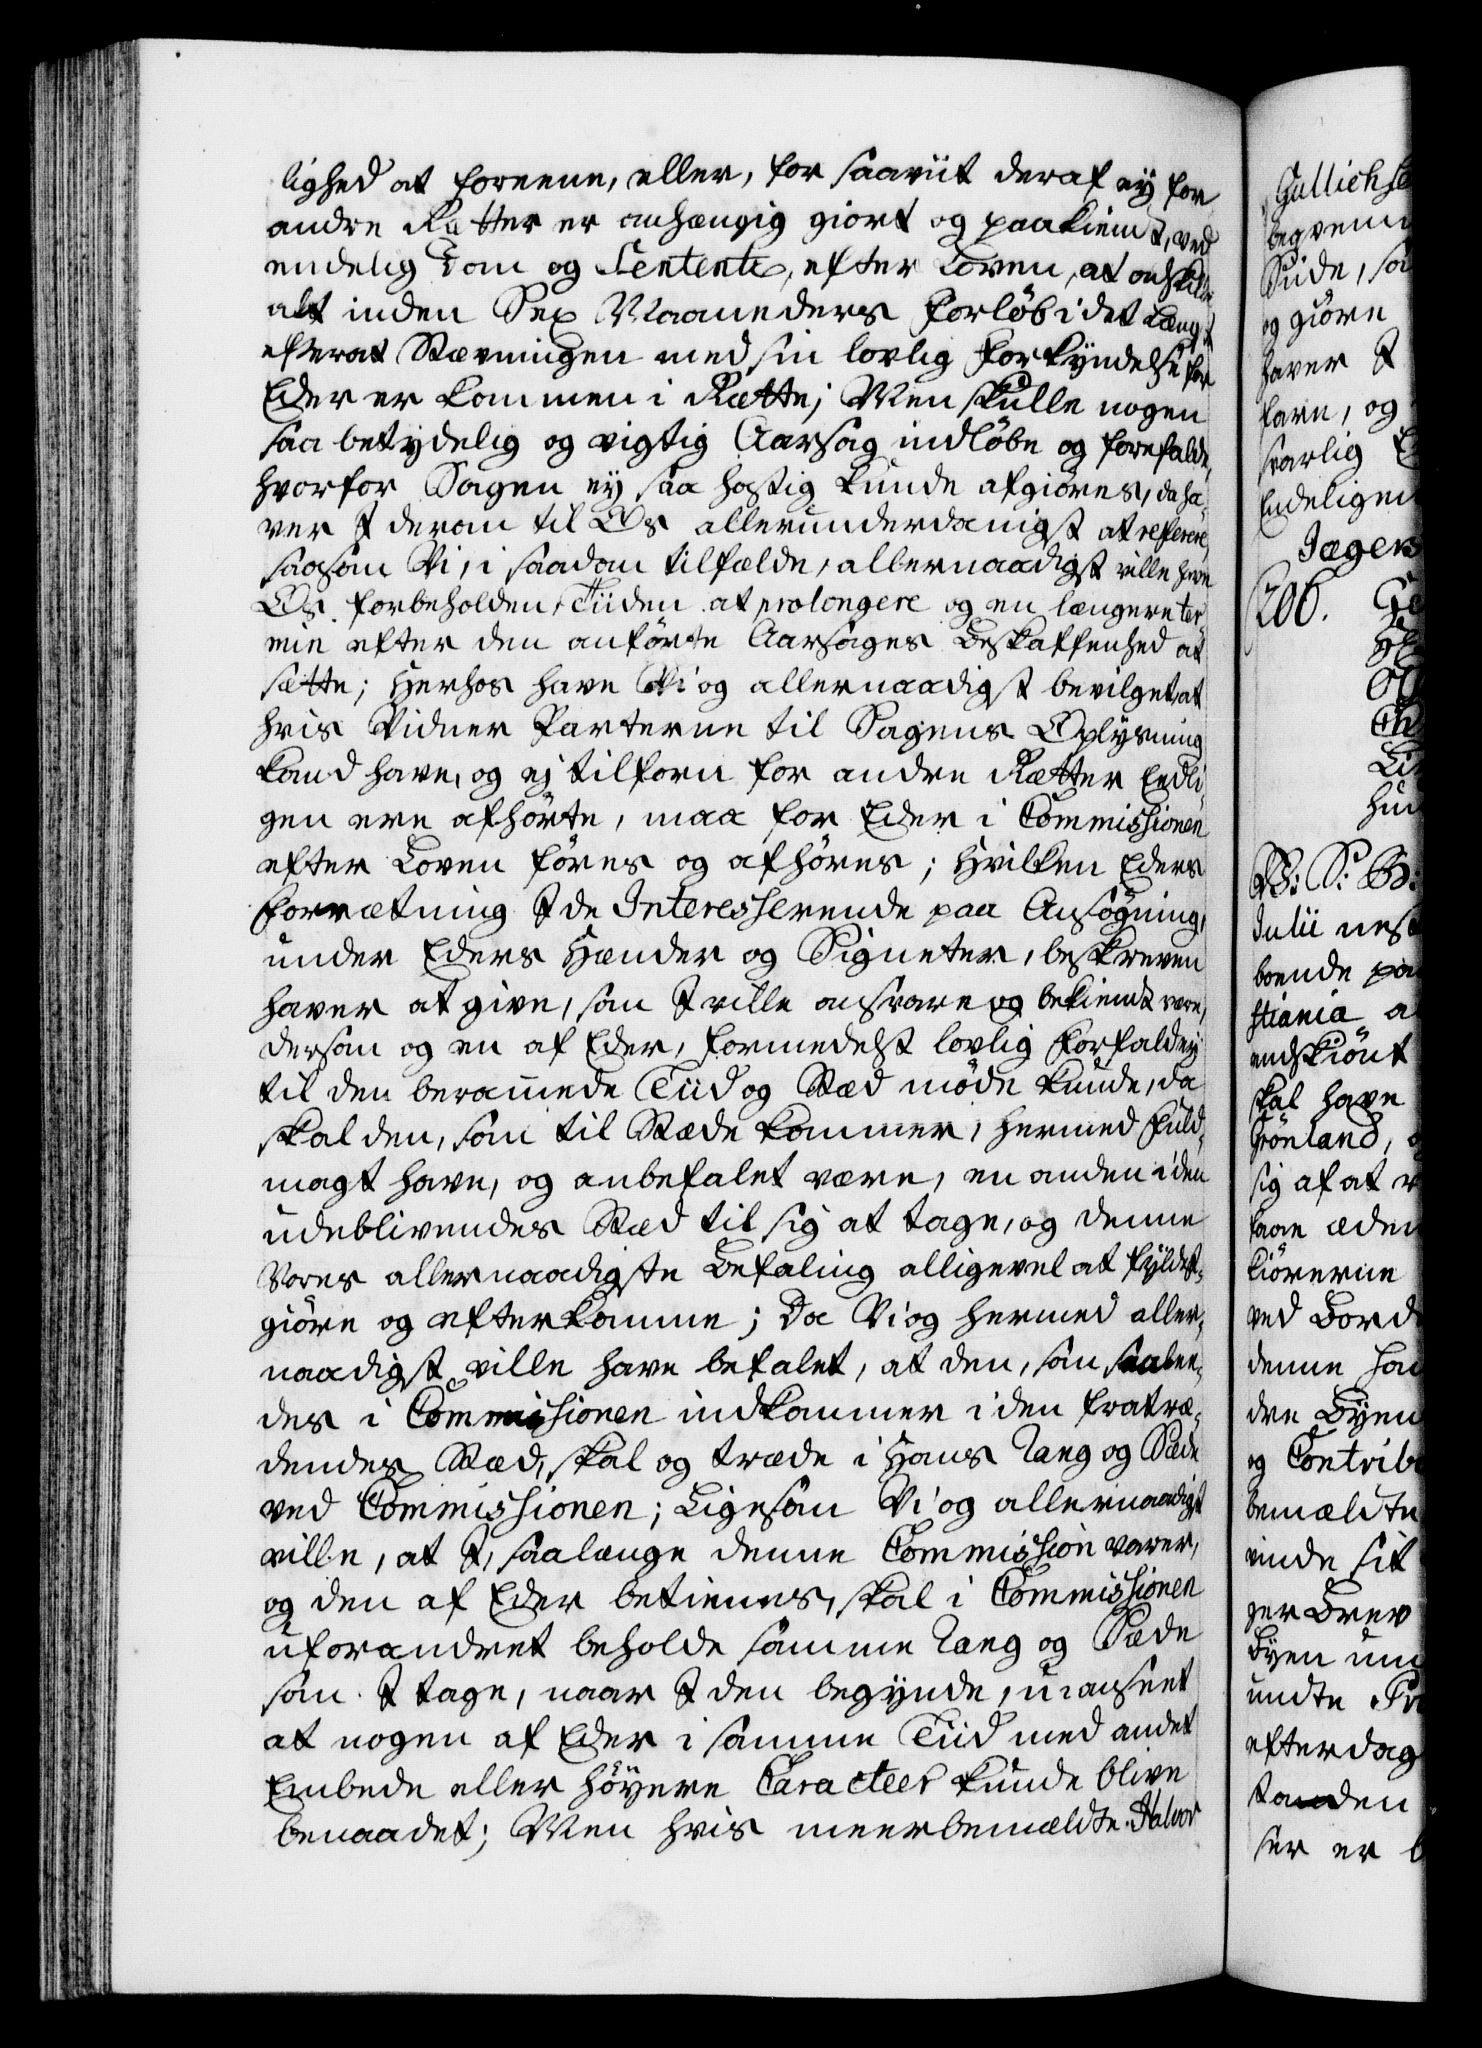 lighed at foreene, eller, for saaviit deraf ey for
andre Rætter er anhængig giort og paakiendt, ved
endelig Dom og Sententz, efter Loven, at adskille
alt inden Sex Maaneders Forløb i det Længste
efterat Stævningen med sin lovlig Forkyndelse for
Eder er kommen i Rætte; Men skulle nogen
saa betydelig og vigtig Aarsag indløbe og forefalde,
hvorfor Sagen ey saa hastig kunde afgiøres, da ha-
ver I derom til Os allerunderdanigst at referere,
saasom Vi, i saadan tilfælde, allernaadigst ville have
Os forbeholden, Tiiden at prolongere og en længere ter-
min efter den anførte Aarsages Beskaffenhed at
sætte; Herhos have Vi og allernaadigst bevilget, at
hvis Vidner Parterne til Sagens Oplysning
kand have, og ej tilforn for andre Rætter Eedli-
gen ere afhørte, maa for Eder i Commissionen
efter Loven føres og afhøres; Hvilken Eders
Forrætning I de Interesserende paa Ansøgning,
under Eders Hænder og Signeter, beskreven
haver at give, som I ville ansvare og bekiendt være,
dersom og en af Eder, formedelst lovlig Forfald ej
til den beramede Tiid og Stæd møde kunde, da
skal den, som til Stæde kommer, hermed Fuld-
magt have, og anbefalet være, en anden i den
udeblivendes Stæd til sig at tage, og denne
Vores allernaadigste Befaling alligevel at fyldest-
giøre og efterkomme; Da Vi og hermed aller-
naadigst ville have befalet, at den, som saalee-
des i Commissionen indkommer i den fratræ-
dendes Stæd, skal og træde i Hans Rang og Sæde
ved Commissionen; Ligesom Vi og allernaadigst
ville, at I, saalænge denne Commission varer,
og den af Eder betienes, skal i Commissionen
uforandret beholde samme Rang og Sæde
som I tage, naar I den begynde, uanseet
at nogen af Eder i samme Tiid med andet
Embede eller høyere Caracteer kunde blive
benaadet; Men hvis meerbemældte Halvor
Gullichse
Siide, saa
og giøre
haver I
fare, og
svarlig
Endeligen
Jægers
206.
V: S: G:
Julii nest
boende paa
stiania a
endskiønt
skal have
Grønland, o
sig af at
kiørerne
ved Bord
denne
dre Byen
og Contrib
bemældte
vinde sit
ger Brev
Byen un
undte
efterdag
ser er b